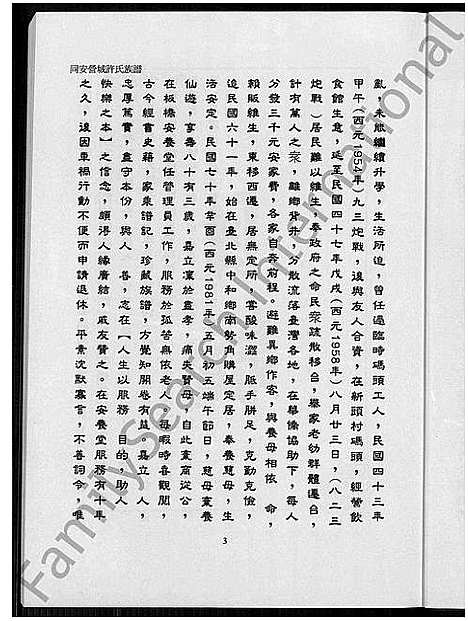 同安營城許氏族譜
亂，未能繼續升學，生活所迫，曾任過臨時碼頭工人，民國四十三年
甲午（西元1954年）九三炮戰，復與友人合資，在新頭村碼頭，經營飲
食館生意，延至民國四十七年戊戌（西元1958年）八月廿三日，（八二三
炮戰）居民難以維生，奉政府之命民眾疏散移台，舉家老幼群體遷台，
計有萬人之眾，離鄉背井，分散流落臺灣各地，在華僑協助下，每人
分發三千元安家費，各家自奔前程。避難異鄉作客，與養母相依 命，
賴販維生，東移西遷，居無定所，嘗酸味澀，胝手胼足，克勤克儉，
迨民國六十一年，始在臺北縣中和鄉南勢角購屋定居，奉養慈母，生
活安定。民國七十年辛酉（西元1981年）五月初五端午節日，慈母棄養
仙遊，享壽八十有三歲，嘉立潔於盡孝，痛失賢母，自此素齋從公，
在板橋安養堂任管理員工作，服務於孤苦無依老人，每暇時喜觀閱，
古今經書史籍，家乘譜記，珍藏族譜，方覺知開卷有益，嘉立 人，
忠厚篤實，盡守本份，與人 善，志在【人生以服務 目的，助人
快樂之本】之信念，頗得人緣廣結，戚友贊之。在安養堂服務有十年
之久，後因車禍行動不便而申請退休。平素沈默寡言，不善詞令，唯
3
FamilySearch International